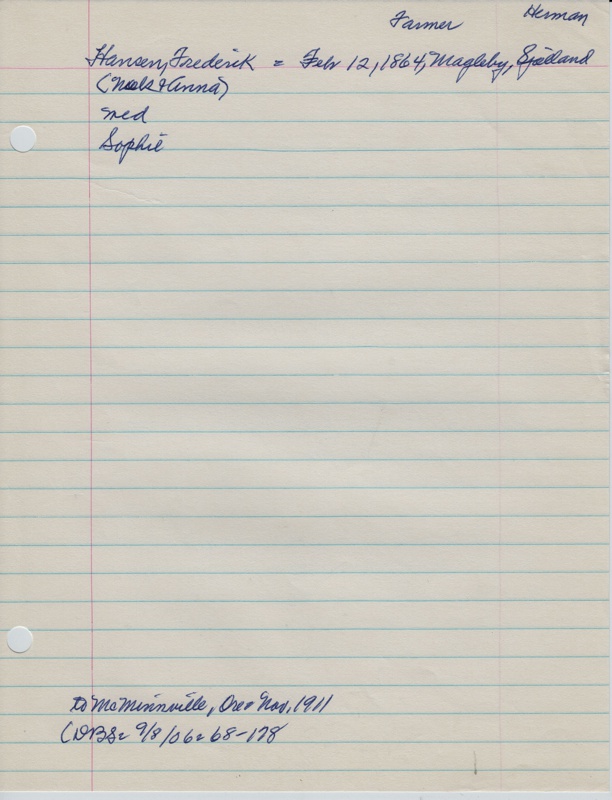 Farmer Herman
Hansen, Frederik = Feb 12, 1864, Magleby, Sjælland
(Niels & Anna)
med
Sophie
To McMinnville, Ore = Nov, 1911
(DBS = 9/8/06 = 68-178